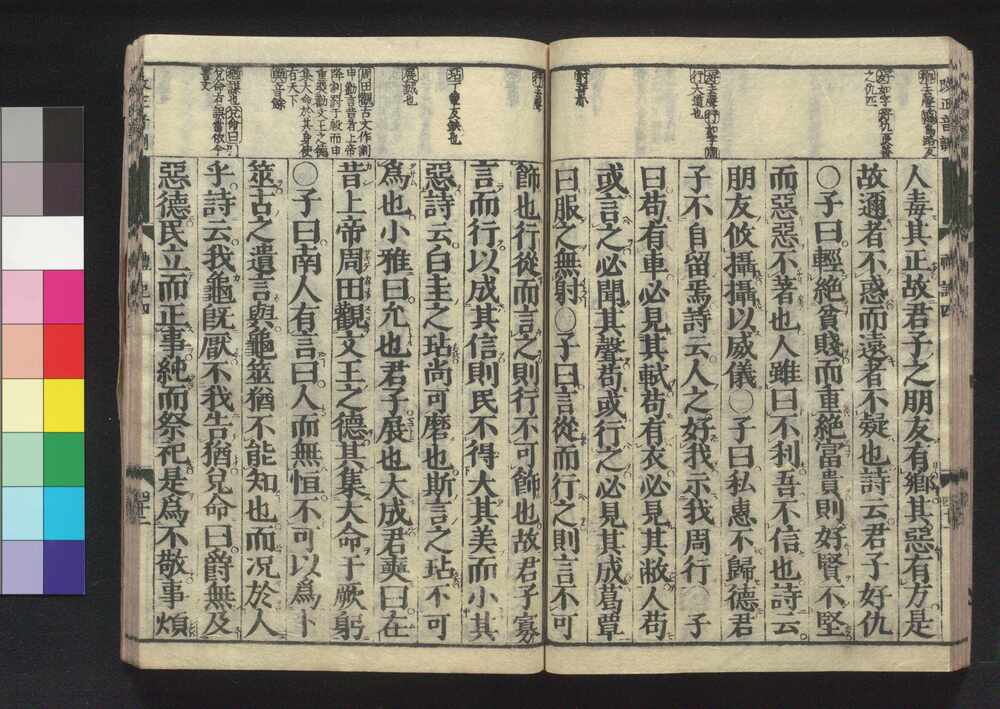 人毒其正故君子之朋友有鄉其惡有方是
故邇者不惑而遠者不疑也詩云君子好仇
〇子曰輕絶貧賤而重絶富貴則好賢不堅
而惡惡不著也人雖曰不利吾不信也詩云
朋友攸攝攝以威儀〇子曰私惠不歸德君
子不自留焉詩云人之好我示我周行〇子
曰苟有車必見其軾苟有衣必見其敝人苟
或言之必聞其聲苟或行之必見其成葛覃
曰服之無射〇子曰言從而行之則言不可
飾也行從而言之則行不可飾也故君子寡
言而行以成其信則民不得大其美而小其
惡詩云白圭之玷尚可磨也斯言之玷不可
爲也小雅曰允也君子展也大成君奭曰在
昔上帝周田觀文王之德其集大命于厥躬
〇子曰南人有言曰人而無恒不可以爲卜
筮古之遺言與龜筮猶不能知也而况於人
乎詩云我龜既厭不我告猶兌命曰爵無及
惡德民立而正事純而祭祀是爲不敬事煩
行大道也
玷丁簟反缺也
展誠也
周田觀古文作割
申勸言昔者上帝
降割罰于殷而申
重奬勸文王之德
集大命於其身使
有天下
與音餘